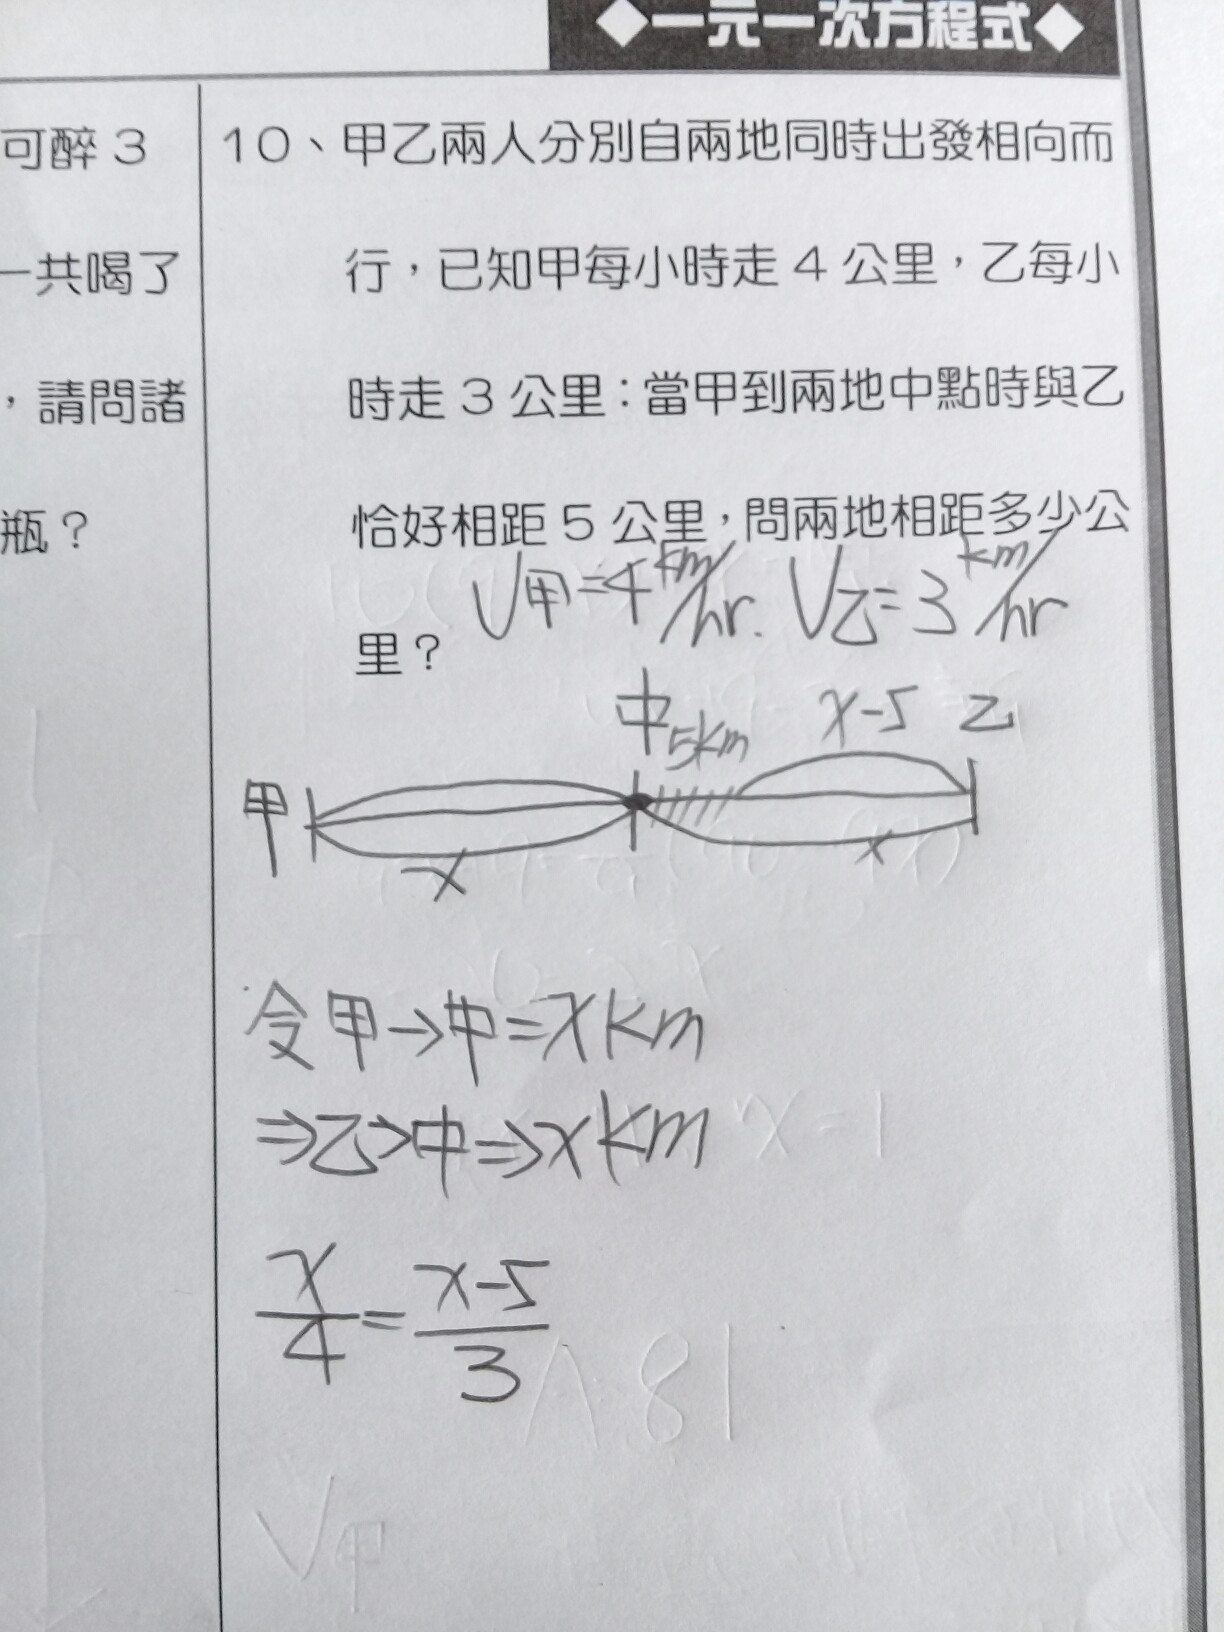 ◆一元一次方程式◆
可醉 3
一共喝了
，請問諸
瓶？
10、甲乙兩人分別自兩地同時出發相向而
行，已知甲每小時走 4 公里，乙每小
時走 3 公里：當甲到兩地中點時與乙
恰好相距 5 公里，問兩地相距多少公
里？
V甲=4 km/hr. V乙=3 km/hr
中 5km x-5 乙
甲
x x
令甲→中=x km
⇒乙→中⇒x km
x/4 = x-5/3